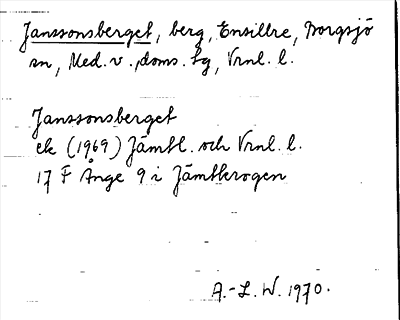 Janssonsberget, berg, Ensillre, Borgsjö
sn, Med. v., doms. tg, Vrnl. l.
Janssonsberget
ek (1969) Jämtl. och Vrnl. l.
17 F Ånge 9 i Jämtkrogen
A.-L. W. 1970.